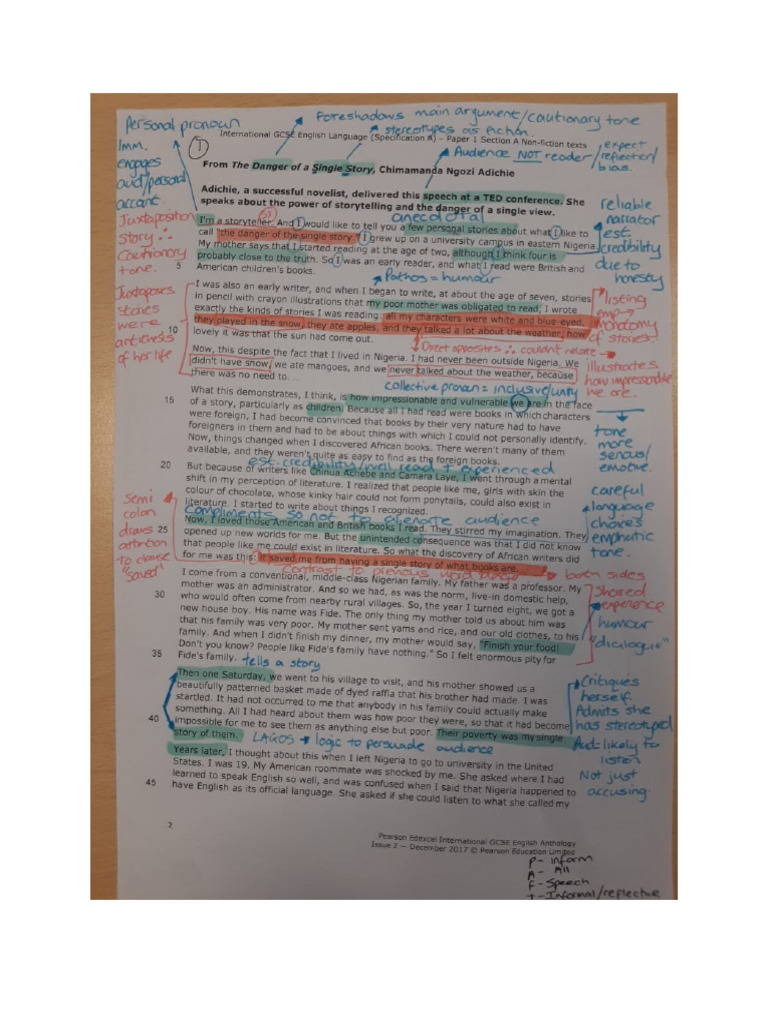 Personal pronoun
Foreshadows main argument/cautionary tone
→ stereotypes as fiction.
International GCSE English Language (Specification A) – Paper 1 Section A Non-fiction texts
Imm. engages aud/personal accont.
①
Audience NOT reader/
expect reflection/bias.
From The Danger of a Single Story, Chimamanda Ngozi Adichie
Adichie, a successful novelist, delivered this speech at a TED conference. She
speaks about the power of storytelling and the danger of a single view.
reliable narrator
est. credibility due to honesty
anecdotal
I'm a storyteller. And I would like to tell you a few personal stories about what I like to
call "the danger of the single story." I grew up on a university campus in eastern Nigeria.
My mother says that I started reading at the age of two, although I think four is
5 probably close to the truth. So I was an early reader, and what I read were British and
American children's books.
Juxtaposition story ∴ Cautionary tone.
Pathos = humour
I was also an early writer, and when I began to write, at about the age of seven, stories
in pencil with crayon illustrations that my poor mother was obligated to read, I wrote
exactly the kinds of stories I was reading: all my characters were white and blue-eyed,
10 they played in the snow, they ate apples, and they talked a lot about the weather, how
lovely it was that the sun had come out.
Juxtaposes stories were antithesis of her life
listing
of stories.
Direct opposites ∴ couldnt relate
Now, this despite the fact that I lived in Nigeria. I had never been outside Nigeria. We
didn't have snow, we ate mangoes, and we never talked about the weather, because
there was no need to. ...
illustrates how impressionable we are.
collective pronoun = inclusive/unity
15 What this demonstrates, I think, is how impressionable and vulnerable we are in the face
of a story, particularly as children. Because all I had read were books in which characters
were foreign, I had become convinced that books by their very nature had to have
foreigners in them and had to be about things with which I could not personally identify.
Now, things changed when I discovered African books. There weren't many of them
available, and they weren't quite as easy to find as the foreign books.
tone more serious/emotive.
est. credibility/well read + experienced
20 But because of writers like Chinua Achebe and Camara Laye, I went through a mental
shift in my perception of literature. I realized that people like me, girls with skin the
colour of chocolate, whose kinky hair could not form ponytails, could also exist in
literature. I started to write about things I recognized.
careful language choices emphatic tone.
Compliments so not to alienate audience
Now, I loved those American and British books I read. They stirred my imagination. They
25 opened up new worlds for me. But the unintended consequence was that I did not know
that people like me could exist in literature. So what the discovery of African writers did
for me was this: It saved me from having a single story of what books are.
semi colon draws attention to clause "saved"
contrast to previous
both sides
I come from a conventional, middle-class Nigerian family. My father was a professor. My
mother was an administrator. And so we had, as was the norm, live-in domestic help,
30 who would often come from nearby rural villages. So, the year I turned eight, we got a
new house boy. His name was Fide. The only thing my mother told us about him was
that his family was very poor. My mother sent yams and rice, and our old clothes, to his
family. And when I didn't finish my dinner, my mother would say, "Finish your food!
Don't you know? People like Fide's family have nothing." So I felt enormous pity for
35 Fide's family.
Shared experience
humour
"dialogue"
tells a story
Then one Saturday, we went to his village to visit, and his mother showed us a
beautifully patterned basket made of dyed raffia that his brother had made. I was
startled. It had not occurred to me that anybody in his family could actually make
something. All I had heard about them was how poor they were, so that it had become
40 impossible for me to see them as anything else but poor. Their poverty was my single
story of them.
Critiques herself. Admits she has stereotyped
Aud: likely to listen
Not just accusing.
LAGOS → logic to persuade audience
Years later, I thought about this when I left Nigeria to go to university in the United
States. I was 19. My American roommate was shocked by me. She asked where I had
learned to speak English so well, and was confused when I said that Nigeria happened to
45 have English as its official language. She asked if she could listen to what she called my
2
Pearson Edexcel International GCSE English Anthology
Issue 2 – December 2017 © Pearson Education Limited
P - inform
A - All
F - Speech
T - Informal/reflective